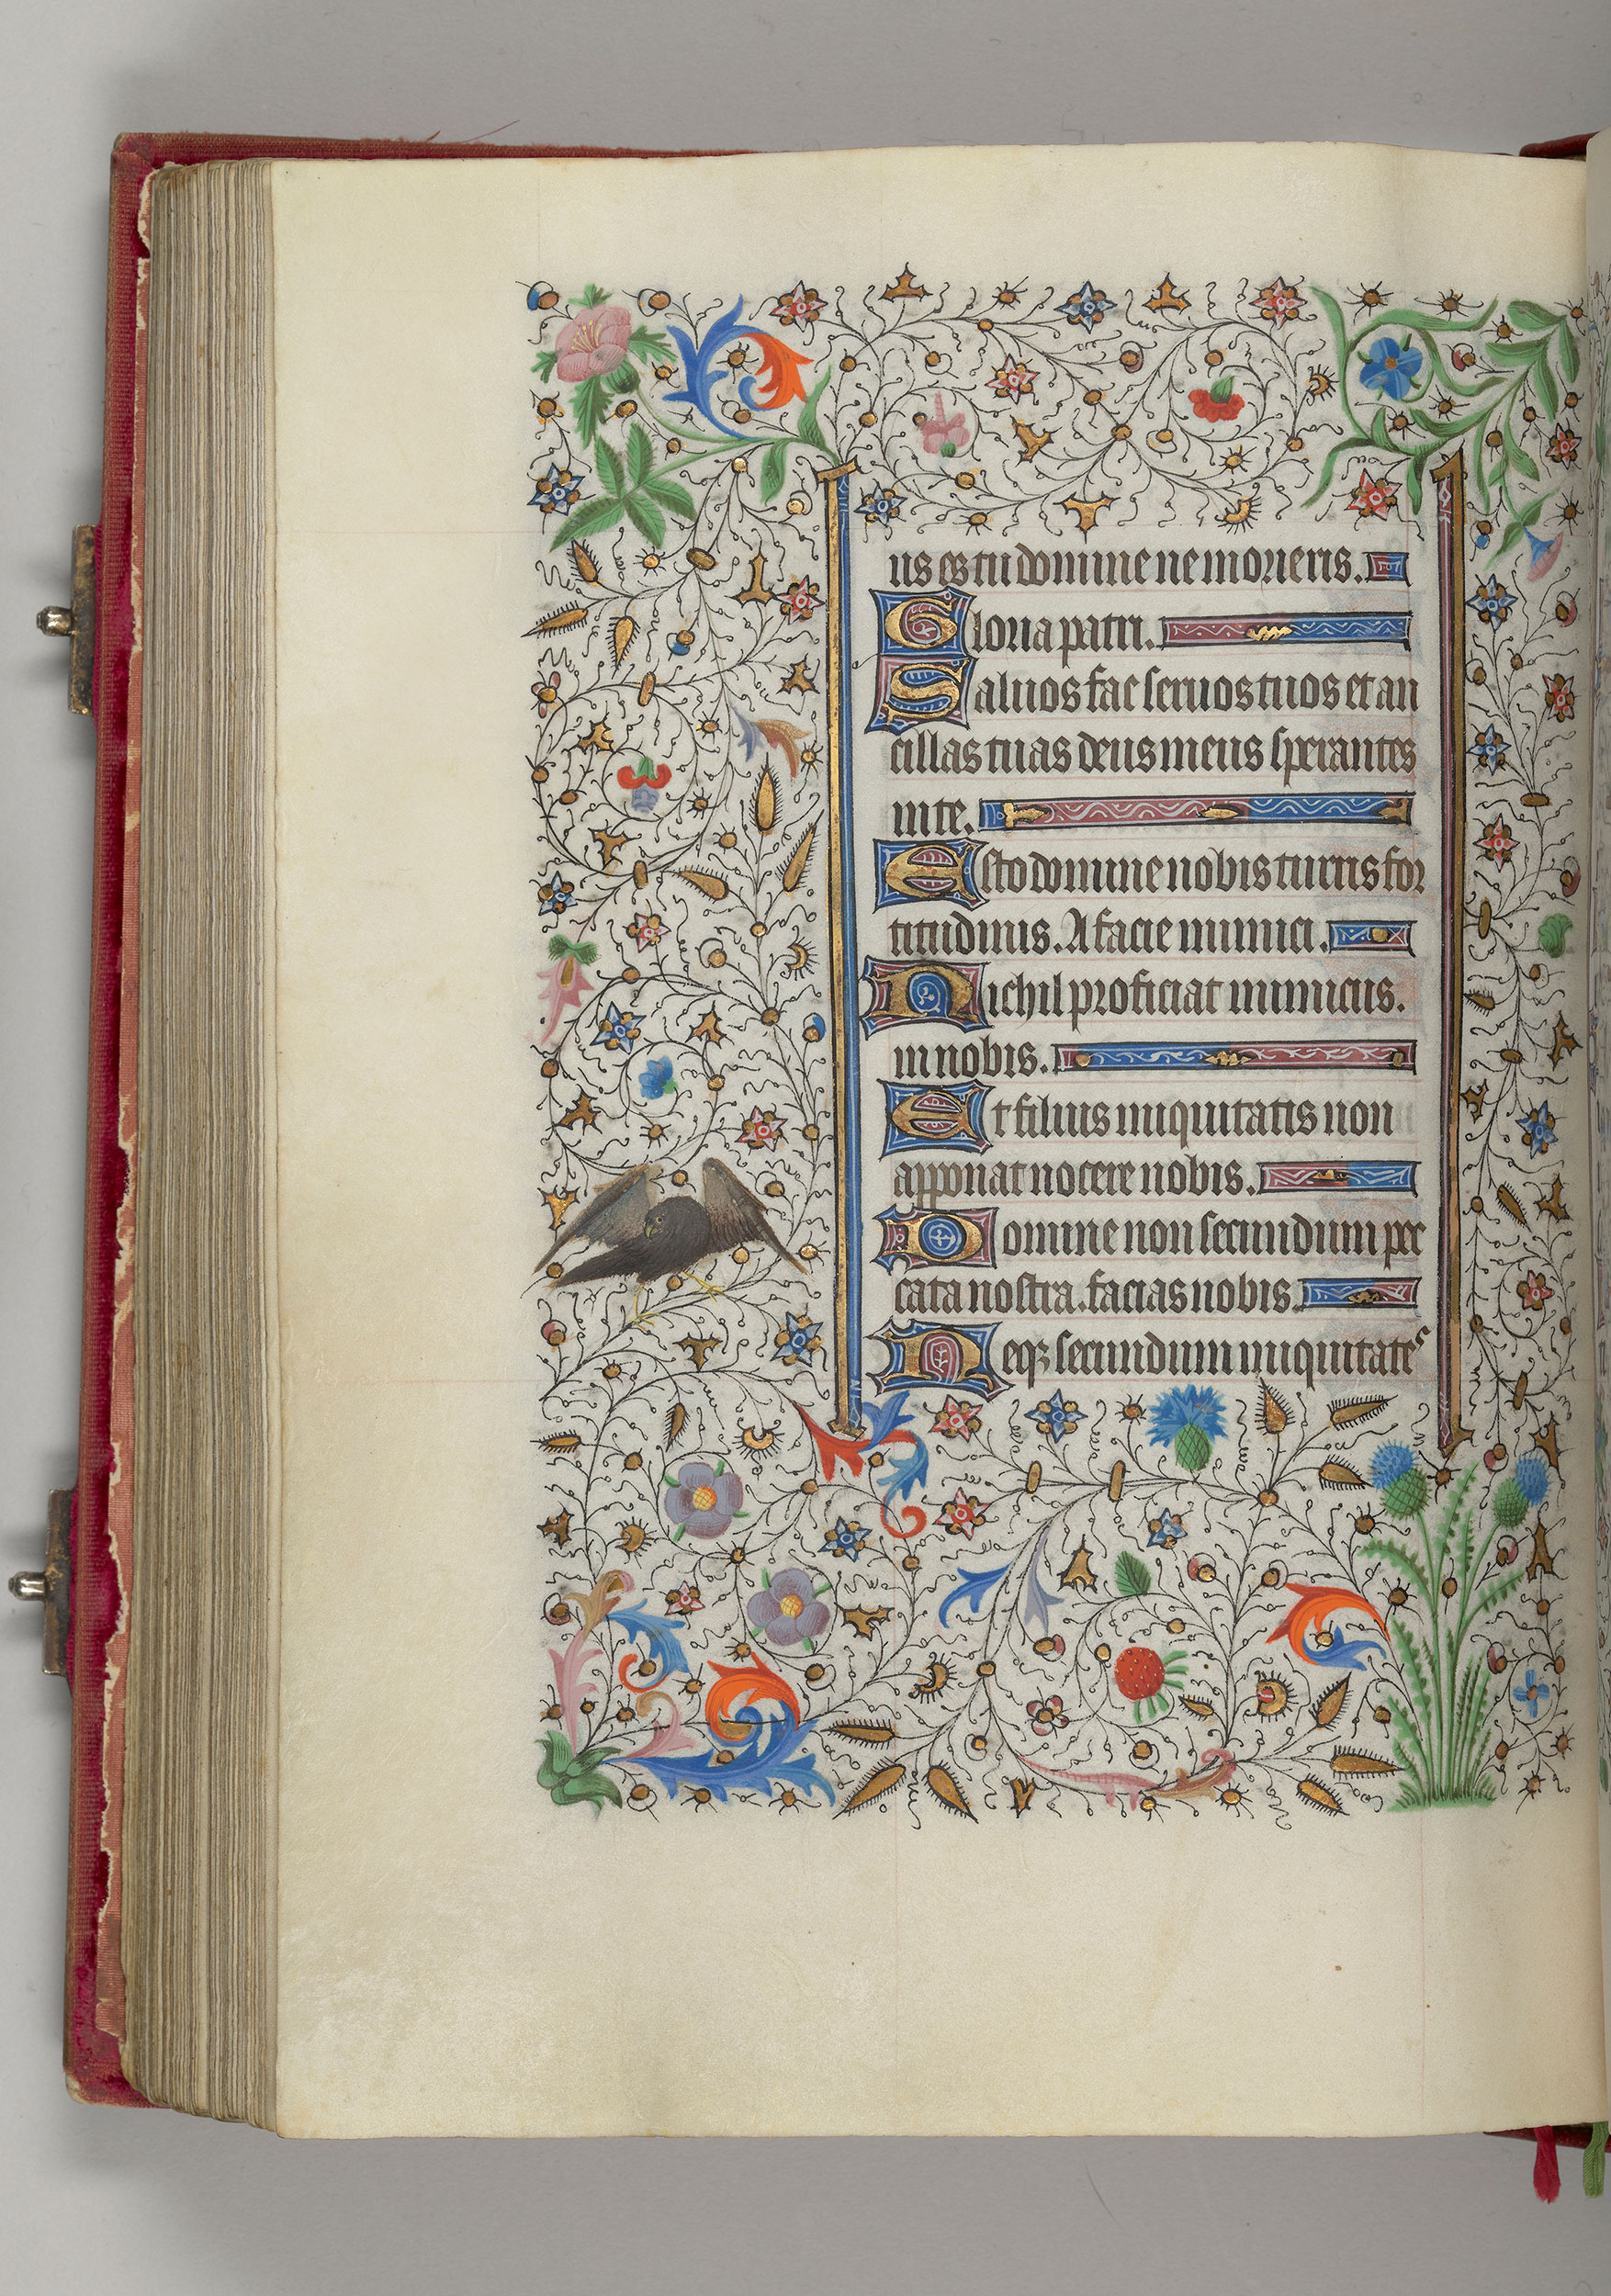 us es tu domine ne moreris.
Gloria patri.
Saluos fac seruos tuos et an
cillas tuas deus meus sperantes
in te.
Esto domine nobis turris for
titudinis. A facie inimici.
Nichil proficiat inimicus.
in nobis.
Et filius iniquitatis non
apponat nocere nobis.
Domine non secundum pec
cata nostra. facias nobis.
Neqꝫ secundum iniquitates